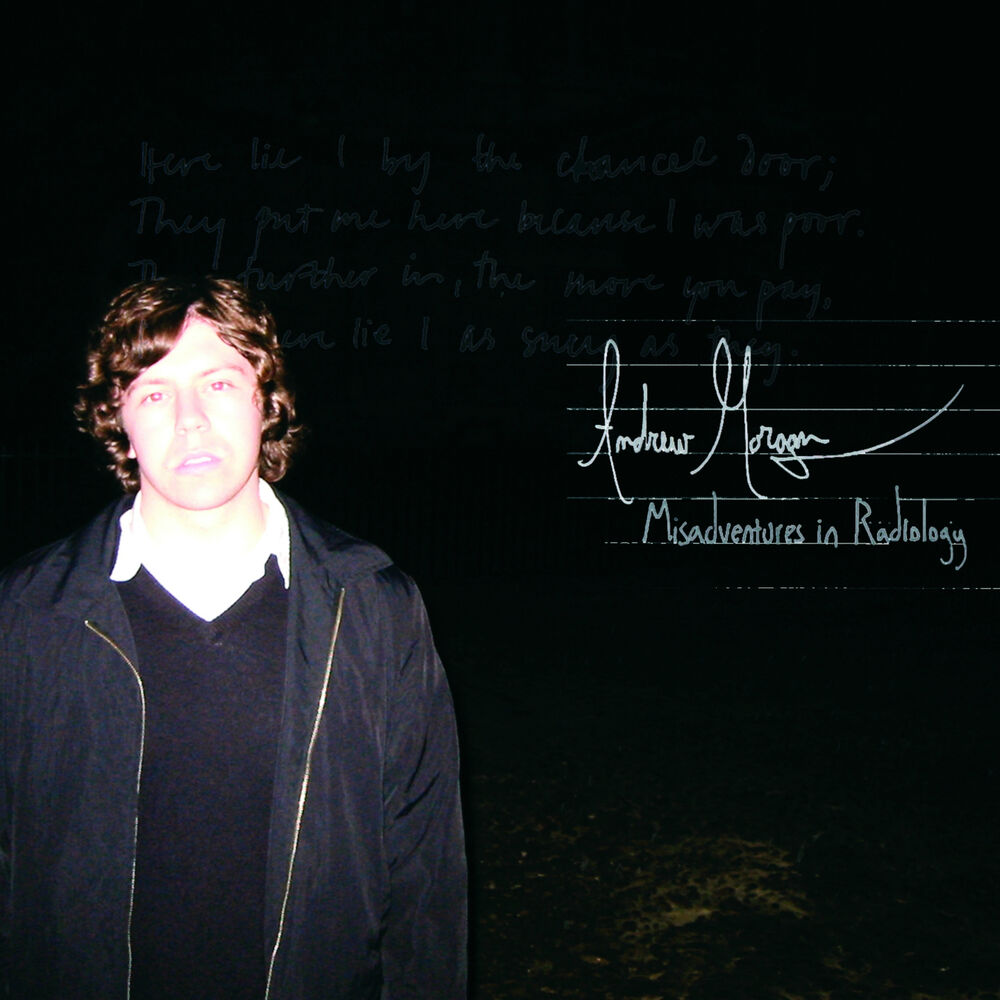 Here lie I by the chancel door;
They put me here because I was poor.
The further in, the more you pay,
here lie I as snug as they.
Andrew Morgan
Misadventures in Radiology